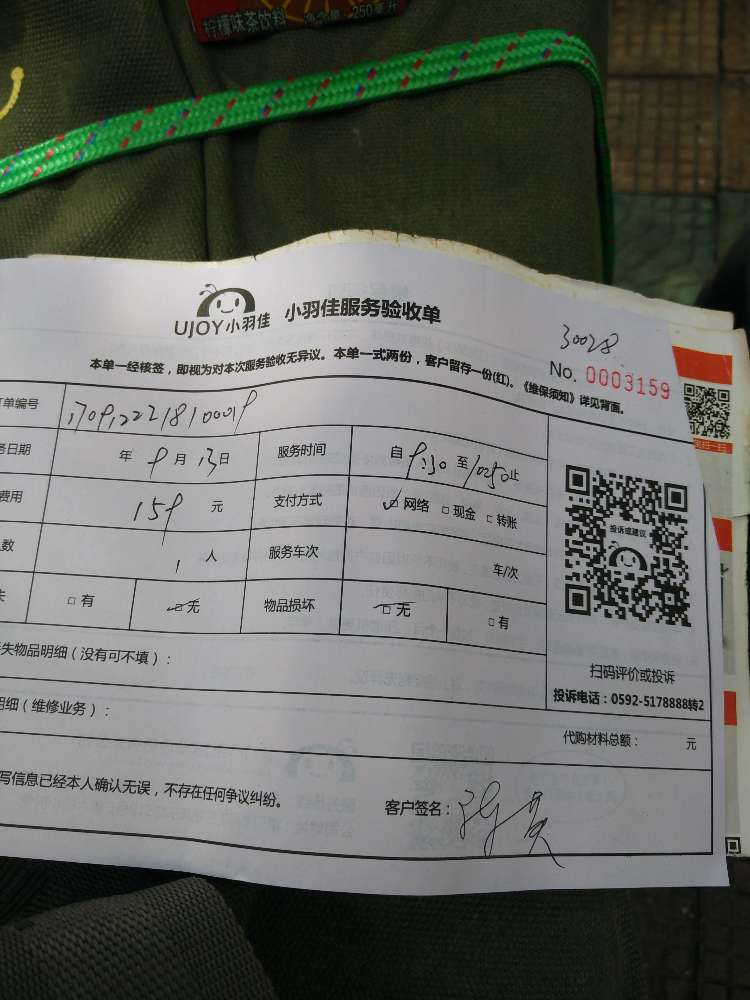 柠檬味茶饮料 净含量：250毫升
UJOY小羽佳 小羽佳服务验收单
30028
No. 0003159
本单一经核签，即视为对本次服务验收无异议。本单一式两份，客户留存一份(红)。《维保须知》详见背面。
单编号
日期 年 9月13日 服务时间 自 9:30 至 10:50 止
费用 159 元 支付方式 ☑ 网络 □ 现金 □ 转账
数 1 人 服务车次 车/次
失 □ 有 ☑ 无 物品损坏 ☑ 无 □ 有
投诉或建议
扫码评价或投诉
投诉电话：0592-5178888转2
失物品明细（没有可不填）：
明细（维修业务）：
代购材料总额： 元
写信息已经本人确认无误，不存在任何争议纠纷。
客户签名：